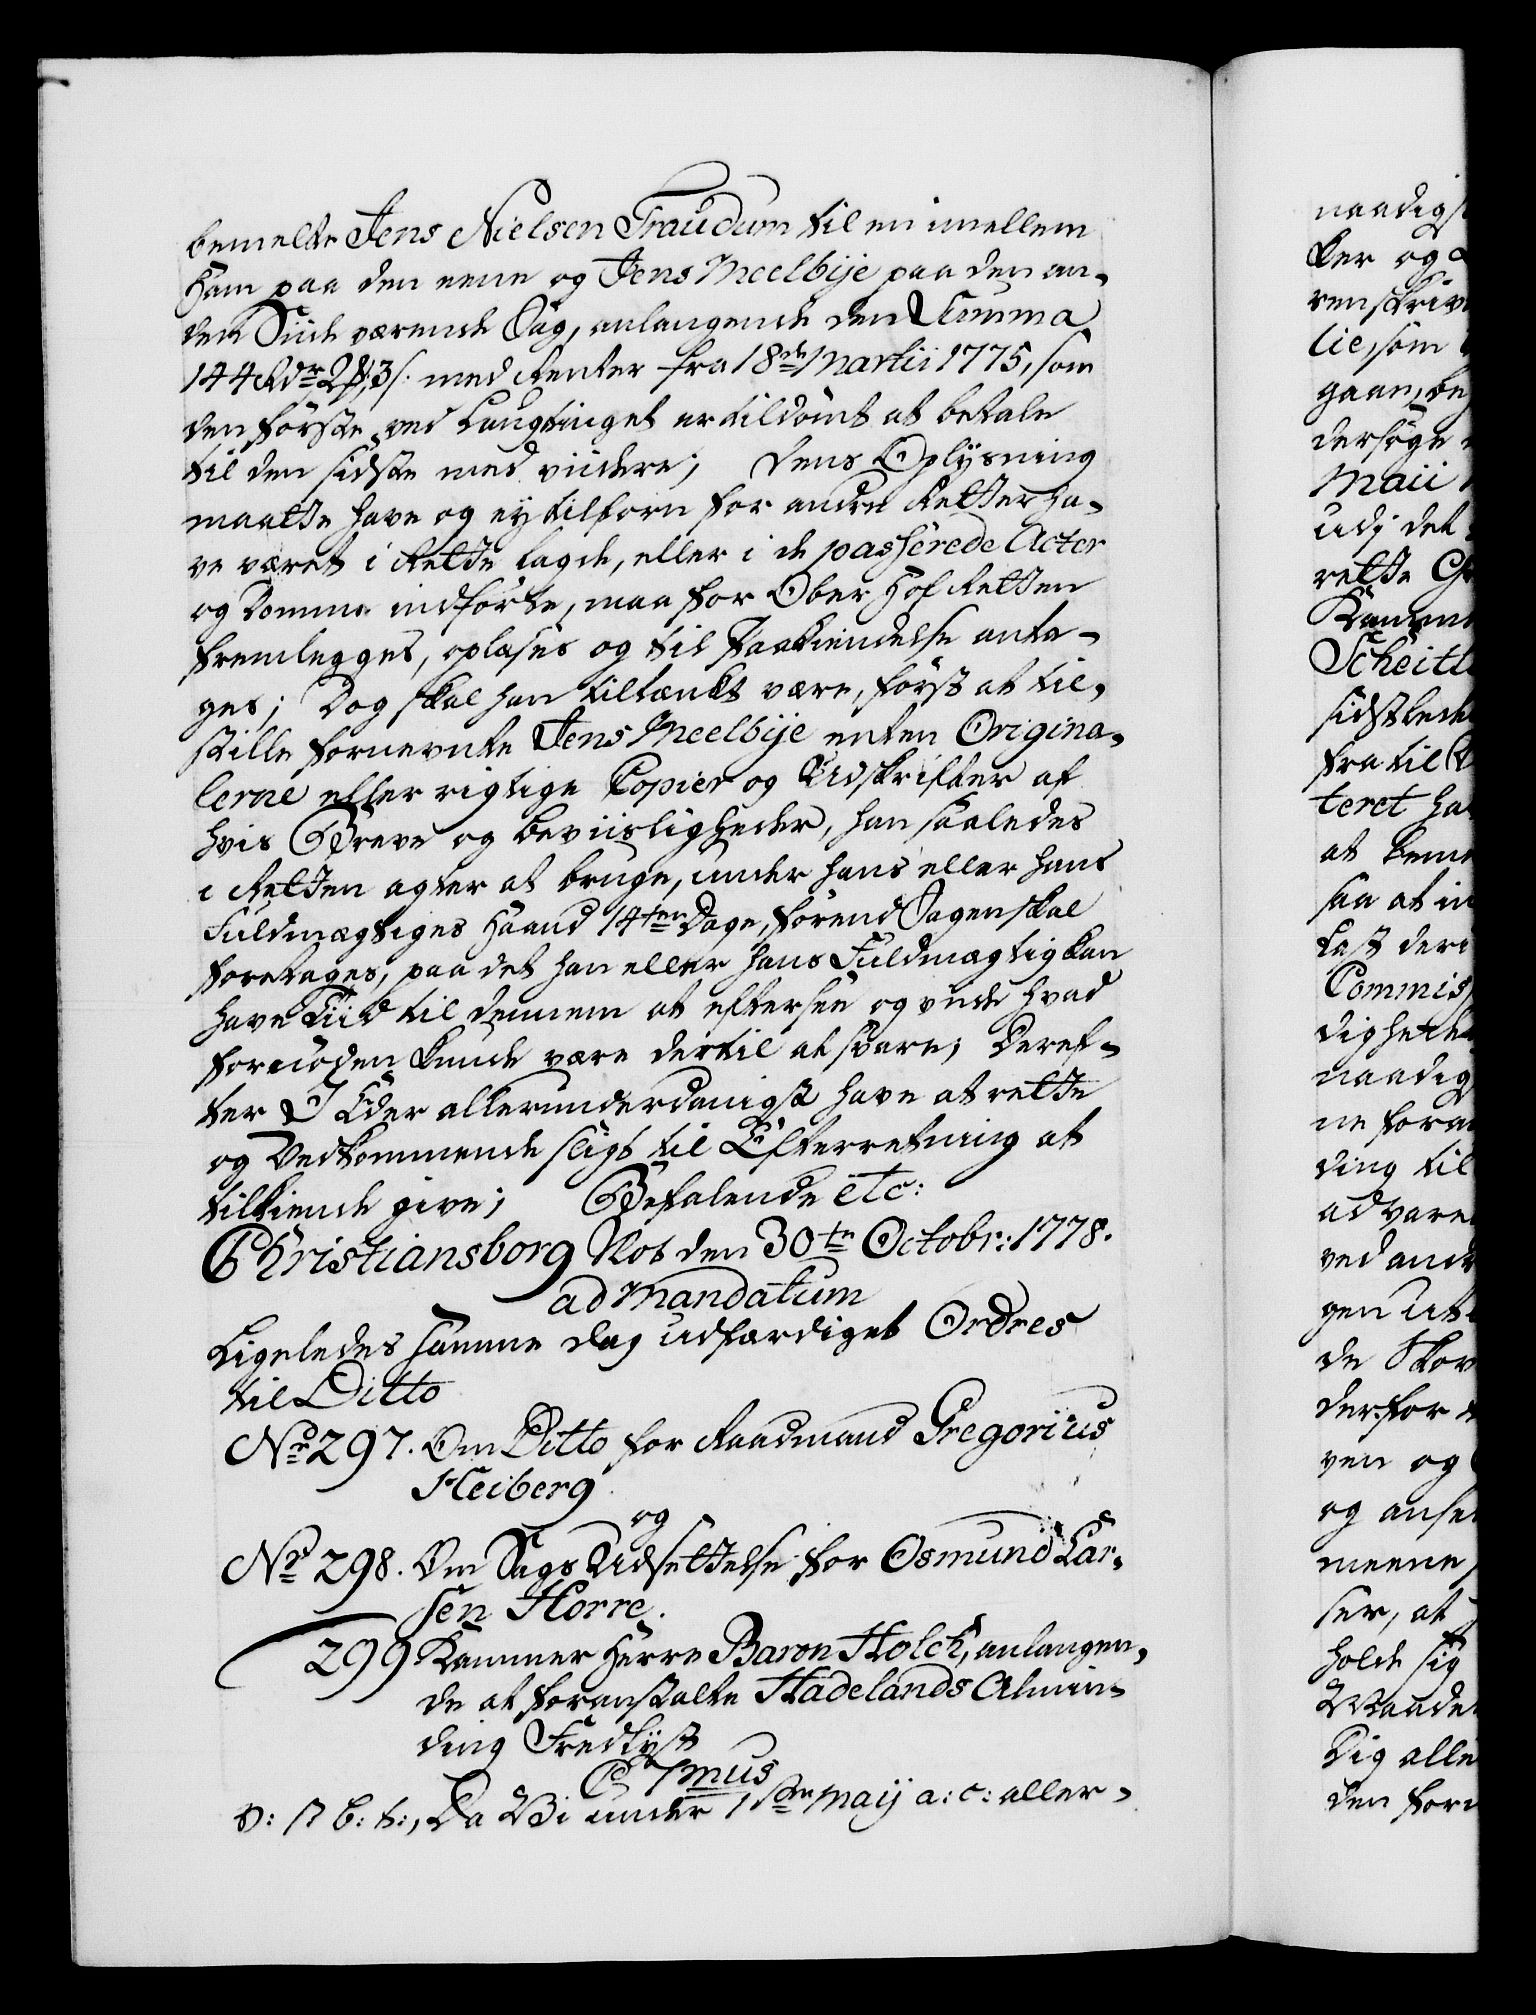 bemelte Jens Nielsen Traudum til en imellem
Ham paa den eene og Jens Meelbije paa den an-
den Siide værende Sag, anlangende den Summa
144 Rdr 2 ₰ 3 s: med Renter fra 18de Martii 1775, som
den første ved Laugtinget er tildømt at betale
til den sidste med viidere; dens Oplysning
maatte have og ey tilforn for andre Retter ha-
ve været i Rette lagde, eller i de passerede Acter
og Domme indførte, maa for Ober Hof Retten
fremlegges, oplæses og til Paakiendelse anta-
ges; Dog skal han tiltænkt være, først at til-
stille fornevnte Jens Meelbije enten Origina-
lerne eller rigtige Copier og Udskrifter af
hvis Breve og beviisligheder, han saaledes
i Retten agter at bruge, under hans eller hans
Fuldmægtiges Haand 14ten Dage, førend Sagen skal
foretages, paa det han eller hans Fuldmægtig kan
have Tiid til dennem at eftersee og viide hvad
fornøden kunde være dertil at svare; Deref-
ter I Eder allerunderdanigst have at rette
og Vedkommende sligt til Efterretning at
tilkiende give; Befalende etc:
Christiansborg Slot den 30te Octobr: 1778.
ad Mandatum
Ligeledes samme dag udfærdiget Ordres
til Ditto
No 297. Om Ditto for Raadmand Gregorius
Heiberg
og
No 298. Om Sags Udsettelse for Osmund Lar-
sen Horre.
299 Kammer Herre Baron Holck, anlangen-
de at foranstalte Hadelands Almin-
ding Fredlyst
C 7mus
V: S: G: T:, Da Vi under 1ste Maij a: c: aller-
naadigs
ker og
renskriv
lie, som
gaan, be
dersøge
Maii
udj det
rette
Kamme
Scheitl
sidstled
fra til
teret ha
at bem
saa at in
kast deri
Commis
dighede
naadig
ne foran
ding til
advare
ved and
gen Ut
de Skov
derfor
ven og
og anse
meene
ser, at
holde sig
Maade
Dig alle
den forn